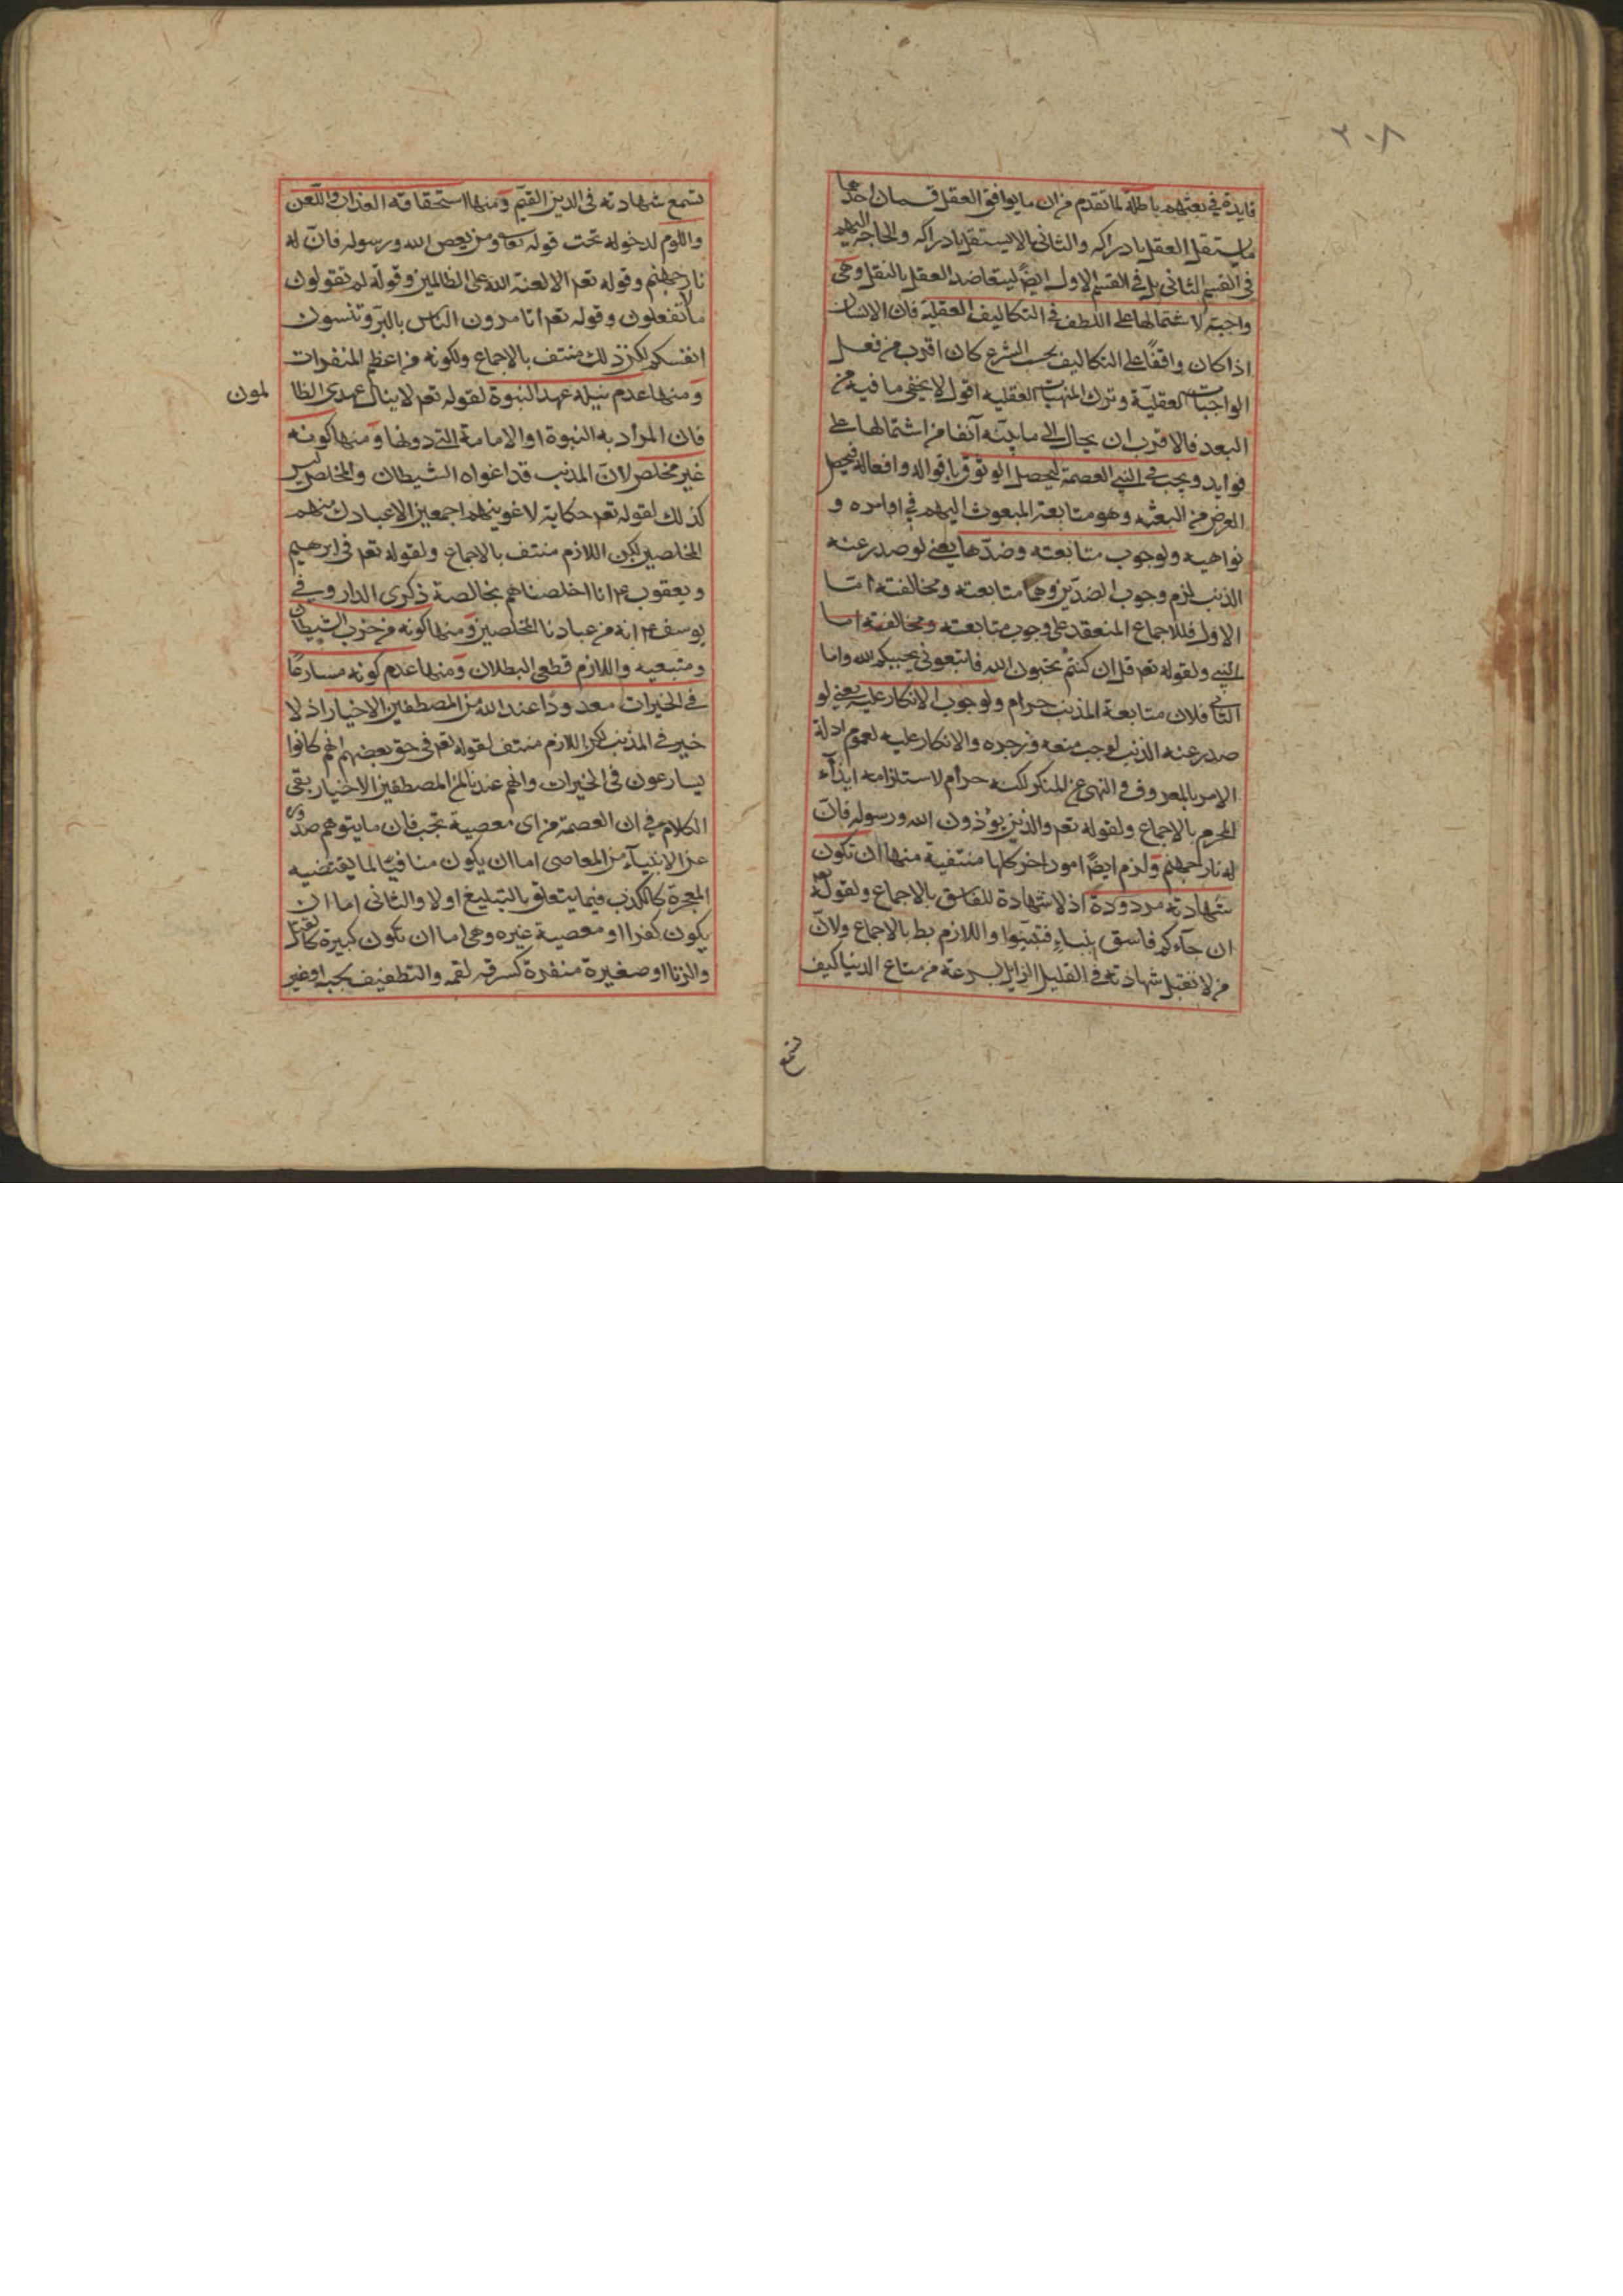 ٢٠٨
فايدة في بعثهم باطلة لما تقدم من ان ما يوافق العقل قسمان احدهما
ما يستقل العقل بادراكه والثاني ما لا يستقل بادراكه والحاجة اليهم
في القسم الثاني بل في القسم الاول ايضا ليتعاضد العقل بالنقل وهي
واجبة لاشتمالها على اللطف في التكاليف العقلية فان الانسان
اذا كان واقفا على التكاليف بحسب الشرع كان اقرب من فعل
الواجبات العقلية وترك المنهيات العقلية اقول لا يخفى ما فيه من
البعد فالاقرب ان يحال الى ما بينه آنفا من اشتمالها على
فوايد ويجب في النبي العصمة ليحصل الوثوق باقواله وافعاله فيحصل
الغرض من البعثة وهو متابعة المبعوث اليهم في اوامره و
نواهيه ولوجوب متابعته وضدها يعني لو صدر عنه
الذنب لزم وجوب الضدين وهما متابعته ومخالفته اما
الاول فللاجماع المنعقد على وجوب متابعته ومخالفته اما
النبي ولقوله تعم قل ان كنتم تحبون الله فاتبعوني يحببكم الله واما
الثاني فلان متابعة المذنب حرام ولوجوب الانكار عليه يعني لو
صدر عنه الذنب لوجب منعه وزجره والانكار عليه لعموم ادلة
الامر بالمعروف والنهي عن المنكر لكنه حرام لاستلزامه ايذآء
المحرم بالاجماع ولقوله تعم والذين يؤذون الله ورسوله فان
له نار جهنم ولزم ايضا امور اخر كلها منتفية منها ان تكون
شهادته مردودة اذ لا شهادة للفاسق بالاجماع ولقوله تعم
ان جآءكم فاسق بنباء فتبينوا واللازم بط بالاجماع ولان
من لا تقبل شهادته في القليل الزايل بسرعة من متاع الدنيا كيف
تسمع
تسمع شهادته في الدين القيم ومنها استحقاقه العذاب واللعن
واللوم لدخوله تحت قوله تعالى ومن يعص الله ورسوله فان له
نار جهنم وقوله تعم الا لعنة الله على الظالمين وقوله لم تقولون
ما لا تفعلون وقوله تعم اتامرون الناس بالبر وتنسون
انفسكم لكن ذلك منتف بالاجماع ولكونه من اعظم المنفرات
ومنها عدم نيله عهد النبوة لقوله تعم لا ينال عهدي الظا لمون
فان المراد به النبوة او الامامة التي دونها ومنها كونه
غير مخلص لان المذنب قد اغواه الشيطان والمخلص ليس
كذلك لقوله تعم حكاية لاغوينهم اجمعين الا عبادك منهم
المخلصين لكن اللازم منتف بالاجماع ولقوله تعم في ابرهيم
ويعقوب عم انا اخلصناهم بخالصة ذكرى الدار وفي
يوسف عم انه من عبادنا المخلصين ومنها كونه من حزب الشيطان
ومتبعيه واللازم قطعي البطلان ومنها عدم كونه مسارعا
في الخيرات معدودا عند الله من المصطفين الاخيار اذ لا
خير في المذنب لكن اللازم منتف لقوله تعم في حق بعضهم انهم كانوا
يسارعون في الخيرات وانهم عندنا لمن المصطفين الاخيار بقي
الكلام في ان العصمة من اي معصية تجب فان ما يتوهم صدوره
عن الانبيآء من المعاصي اما ان يكون منافيا لما يقتضيه
المعجزة كالكذب فيما يتعلق بالتبليغ اولا والثاني اما ان
يكون كفرا او معصية غيره وهي اما ان تكون كبيرة كالقتل
والزنا او صغيرة منفرة كسرقة لقمة والتطفيف بحبة او غير